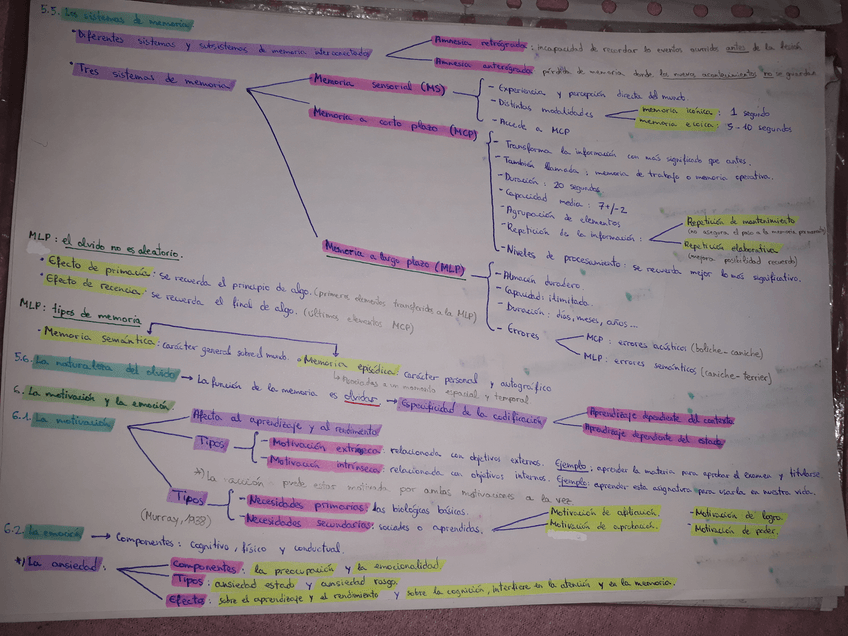 5.5. Los sistemas de memoria
• Diferentes sistemas y subsistemas de memoria interconectada
Amnesia retrógrada: incapacidad de recordar los eventos ocurridos antes de la lesión
Amnesia anterógrada: pérdida de memoria donde los nuevos acontecimientos no se guardan
• Tres sistemas de memoria
Memoria sensorial (MS)
- Experiencia y percepción directa del mundo.
- Distintas modalidades
memoria icónica: 1 segundo
memoria ecoica: 5-10 segundos
- Accede a MCP
Memoria a corto plazo (MCP)
- Transforma la información con más significado que antes.
- También llamada: memoria de trabajo o memoria operativa.
- Duración: 20 segundos
- Capacidad media: 7+/-2
- Agrupación de elementos
- Repetición de la información:
Repetición de mantenimiento
(no asegura el paso a la memoria permanente)
Repetición elaborativa
(mejora posibilidad recuerdo)
- Niveles de procesamiento: se recuerda mejor lo más significativo.
Memoria a largo plazo (MLP)
- Almacén duradero
- Capacidad: ilimitada
- Duración: días, meses, años...
- Errores
MCP: errores acústicos (boliche-caniche)
MLP: errores semánticos (caniche-terrier)
MLP: el olvido no es aleatorio.
• Efecto de primacía: se recuerda el principio de algo. (primeros elementos transferidos a la MLP)
• Efecto de recencia: se recuerda el final de algo. (últimos elementos MCP)
MLP: tipos de memoria
• Memoria semántica: carácter general sobre el mundo.
• Memoria episódica: carácter personal y autográfico
Asociadas a un momento espacial y temporal
5.6. La naturaleza del olvido
La función de la memoria es olvidar → Especificidad de la codificación
Aprendizaje dependiente del contexto
Aprendizaje dependiente del estado
6. La motivación y la emoción.
6.1. La motivación
Afecta al aprendizaje y al rendimiento
Tipos
- Motivación extrínseca: relacionada con objetivos externos. Ejemplo: aprender la materia para aprobar el examen y titularse.
- Motivación intrínseca: relacionada con objetivos internos. Ejemplo: aprender esta asignatura para usarla en nuestra vida.
*) La acción puede estar motivada por ambas motivaciones a la vez
Tipos
(Murray, 1938)
- Necesidades primarias: las biológicas básicas.
- Necesidades secundarias: sociales o aprendidas.
Motivación de afiliación.
Motivación de aprobación.
- Motivación de logro.
- Motivación de poder.
6.2. La emoción → Componentes: cognitivo, físico y conductual.
*) La ansiedad:
Componentes: la preocupación y la emocionalidad.
Tipos: ansiedad estado y ansiedad rasgo.
Efecto: sobre el aprendizaje y el rendimiento y sobre la cognición, interfiere en la atención y en la memoria.